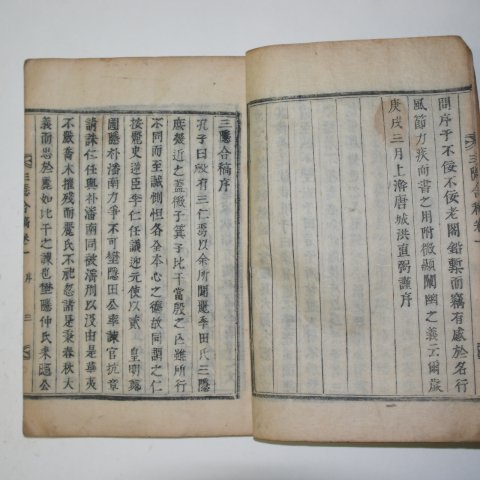 問序于不佞不佞老閣鉛槧而竊有感於名行
風節力疾而書之用附微顯闡幽之義云爾歲
庚戌三月上澣唐城洪直弼謹序
三隱合稿卷一
三隱合稿序
孔子曰殷有三仁焉以余所聞麗季田氏三隱
庶幾近之蓋微子箕子比干當殷之亡雖所行
不同而至誠惻怛各全本心之德故同謂之仁
按麗史逆臣李仁任議迎元使以貳 皇明鄭
圃隱朴潘南力爭不可壄隱田公率諫官抗章
請誅仁任與朴潘南同被潘刑以沒由是華夷
不嚴喬木摧殘而麗氏不祀忽諸是秉春秋大
義而思於麗如比干之諫也壄隱仲氏耒隱公
三隱合稿卷一 序 三